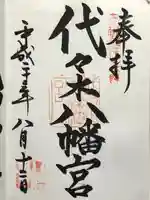 奉拝
代々木八幡宮
平成二十年八月十二日